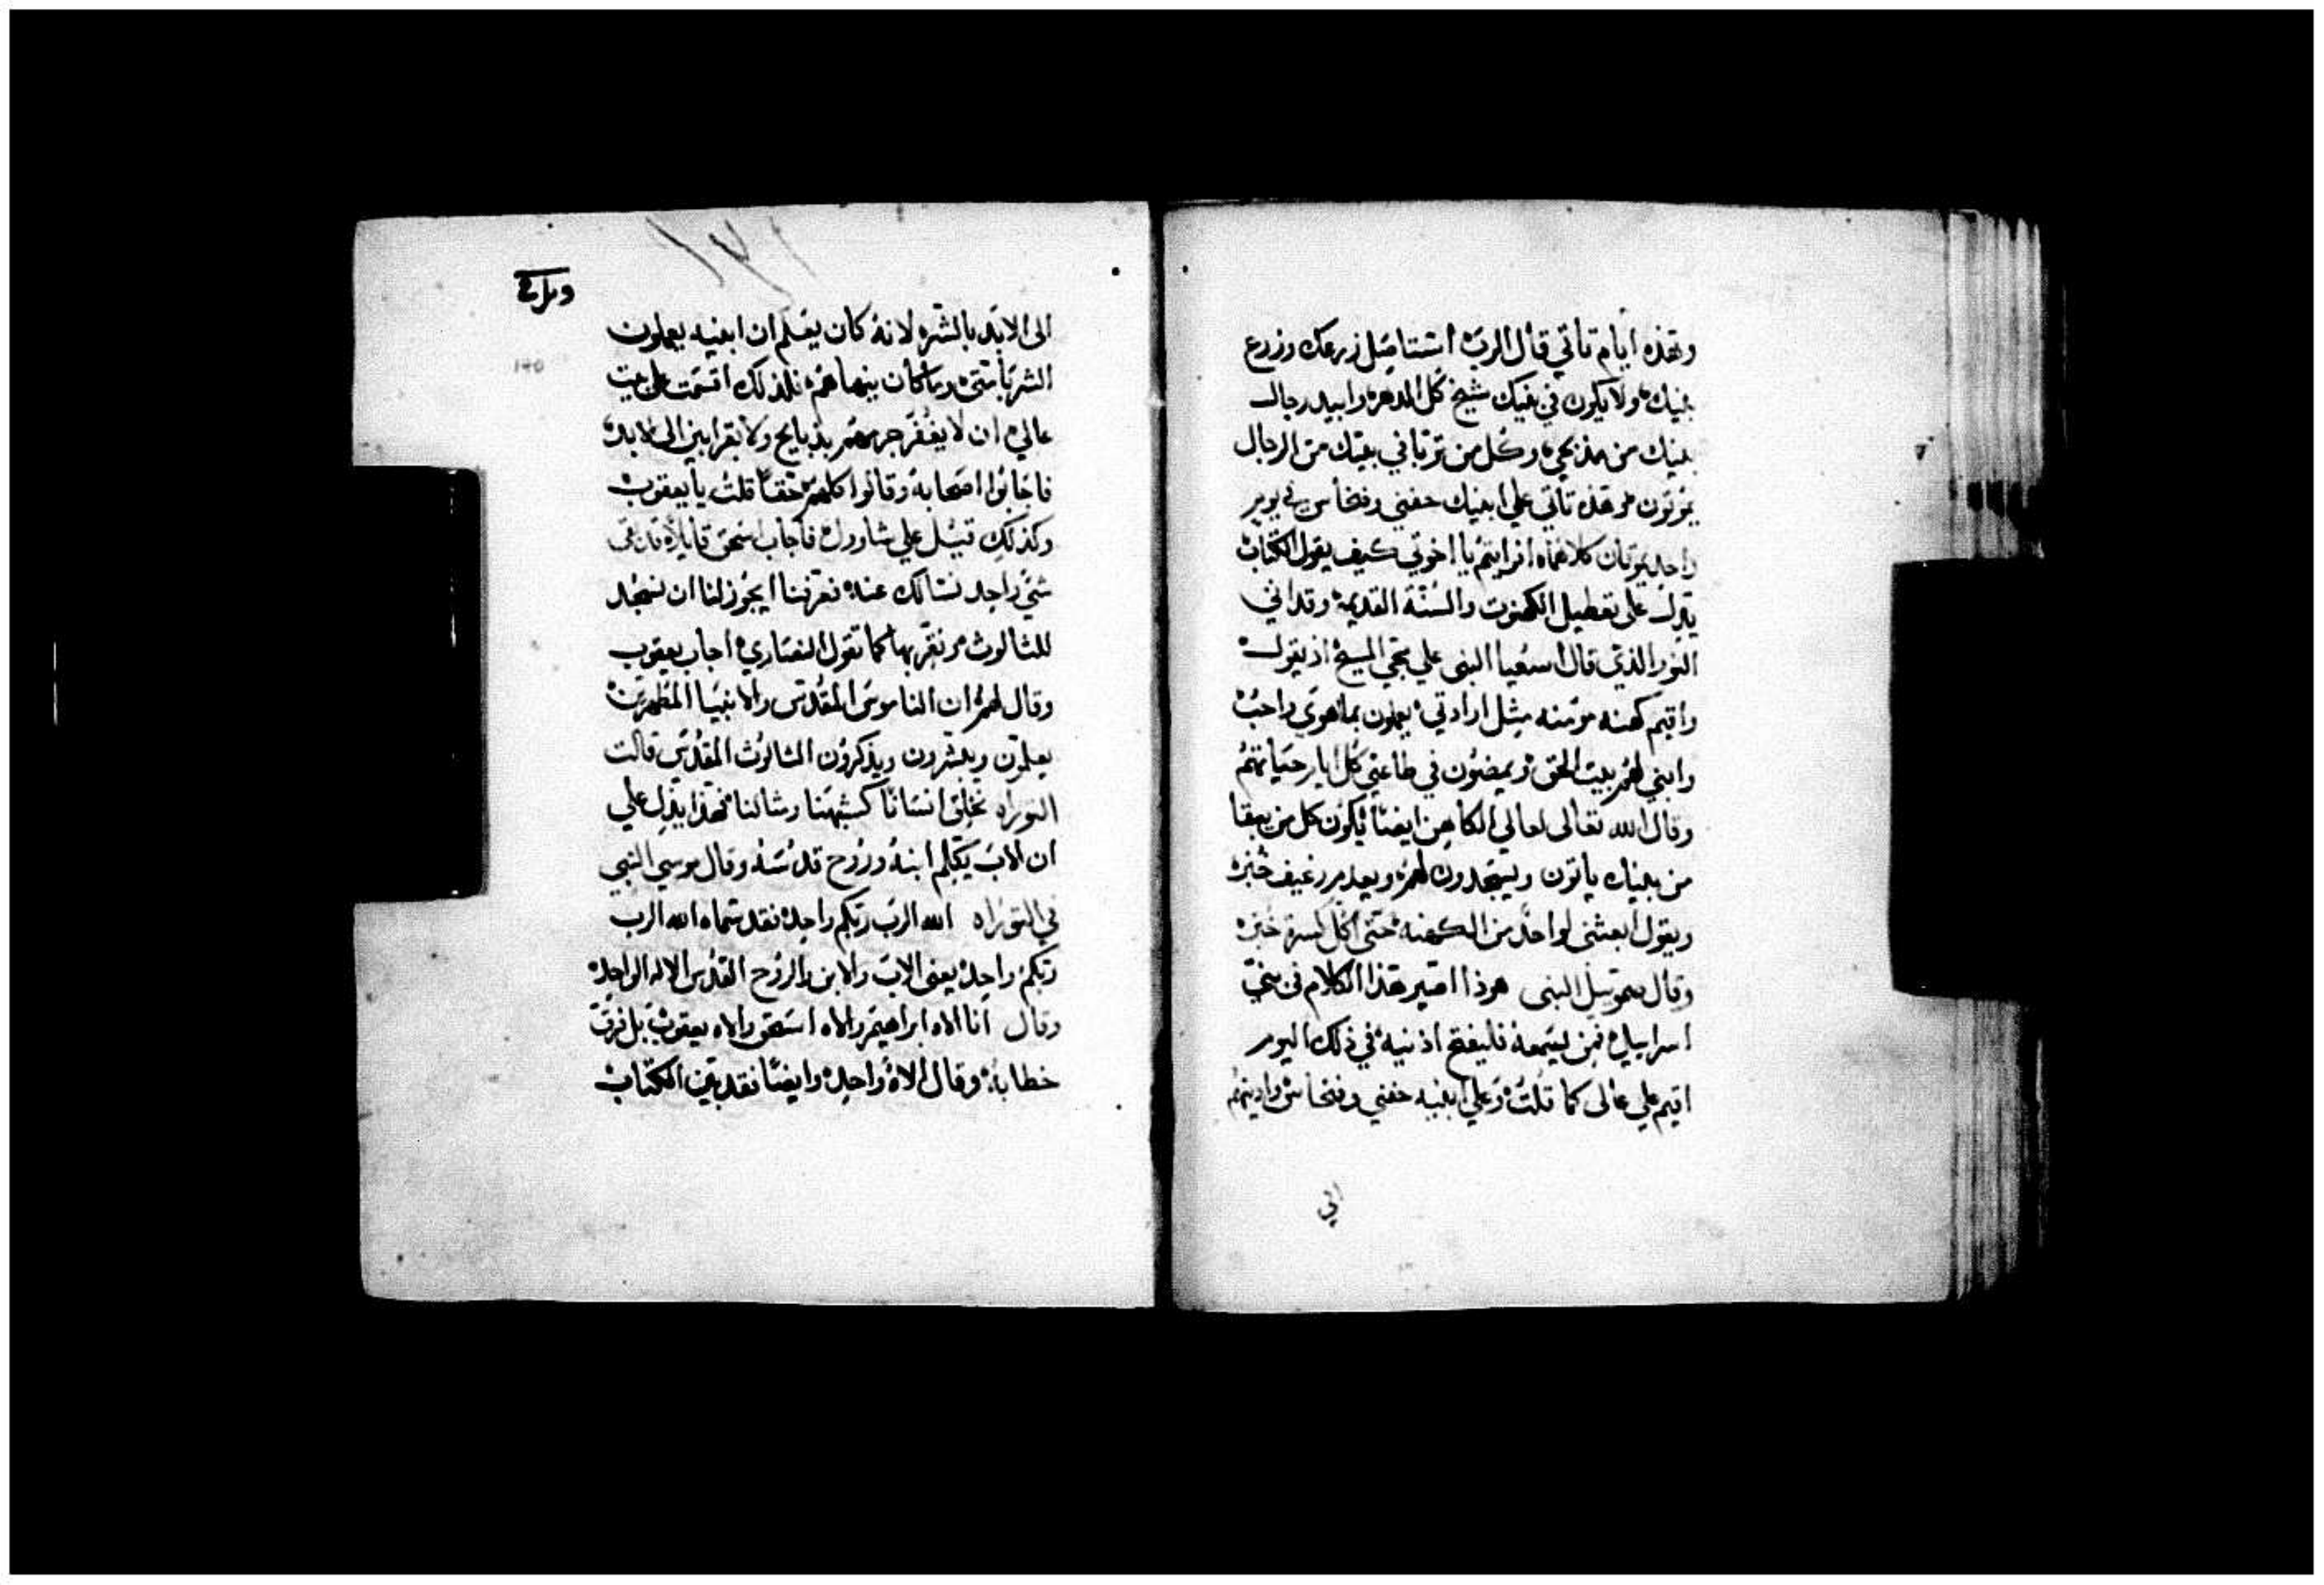 وهذه ايام تاتي قال الرب استاصل زرعك وزرع
بنيك ولا يكون في بيتك شيخ كل الدهر وابيد رجال
بنيك من مذبحي وكل من تربا في بيتك من الرجال
يموتون وهذه تاتي علي ابنيك حفني وفنحاس في يوم
واحد يموتان كلاهما افرايتم يا اخوتي كيف يقول الكتاب
يدل علي تعطيل الكهنوت والسنة القديمة وقد اتي
النور الذي قال اسعيا النبي علي مجي المسيح اذ يقول
واقيم كهنه مومنه مثل ارادتي يعملون بما هوي واحب
وابني لهم بيت الحق ويمضون في طاعتي كل ايام حياتهم
وقال الله تعالى لعالي الكاهن ايضا يكون كل من يبقا
من بنيك ياتون ويسجدون لهم ويعدم رغيف خبز
ويقول ابعثني لواحد من الكهنه حتى اكل كسرة خبز
وقال سموييل النبى هوذا اصير هذا الكلام في بني
اسراييل فمن يسمعه فليفتح اذنيه في ذلك اليوم
اقيم علي عالى كما قلت وعلي ابنيه حفني وفنحاس وادينهم
الي
١٧١
140
الى الابد بالشر لانه كان يعلم ان ابنيه يعملون
الشر بامتى وما كان ينهاهم فلذلك اقسمت علي بيت
عالي ان لا يغفر جرمهم بذبايح ولا بقرابين الى الابد
فاجابوا اصحابه وقالوا كلهم حقا قلت يا يعقوب
وكذلك قيل علي شاوول فاجاب اسحق قايلا قد بقى
شي واحد نسالك عنه فعرفنا ايجوز لنا ان نسجد
للثالوث ونقر بها كما تقول النصاري اجاب يعقوب
وقال لهم ان الناموس المقدس والانبيا المطهرين
يعلمون ويبشرون ويذكرون الثالوث المقدس قالت
التوراه نخلق انسانا كشبهنا ومثالنا فهذا يدل علي
ان الاب يكلم ابنه وروح قدسه وقال موسي النبي
في التوراه الله الرب ربكم واحد فقد سماه الله الرب
ربكم واحد يعنى الاب والابن والروح القدس الاله الواحد
وقال انا الاه ابراهيم والاه اسحق والاه يعقوب بل فرق
خطابه وقال الاه واحد وايضا فقد بين الكتاب